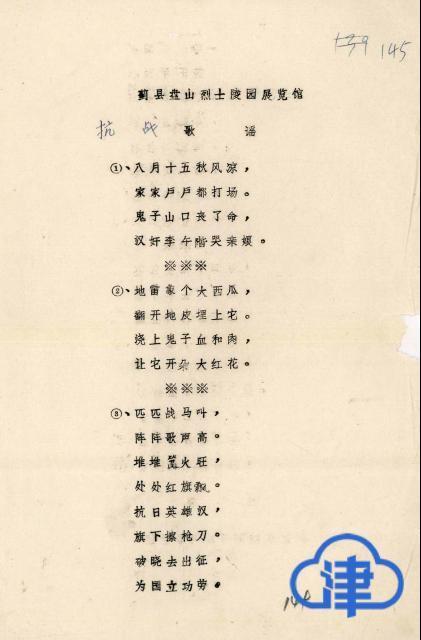 145
蓟县盘山烈士陵园展览馆
抗战歌谣
①、八月十五秋风凉，
家家户户都打场。
鬼子山口丧了命，
汉奸李午阶哭亲娘。
※※※
②、地雷象个大西瓜，
翻开地皮埋上它。
浇上鬼子血和肉，
让它开朵大红花。
※※※
③、匹匹战马叫，
阵阵歌声高。
堆堆篝火旺，
处处红旗飘。
抗日英雄汉，
旗下擦枪刀。
破晓去出征，
为国立功劳。
津